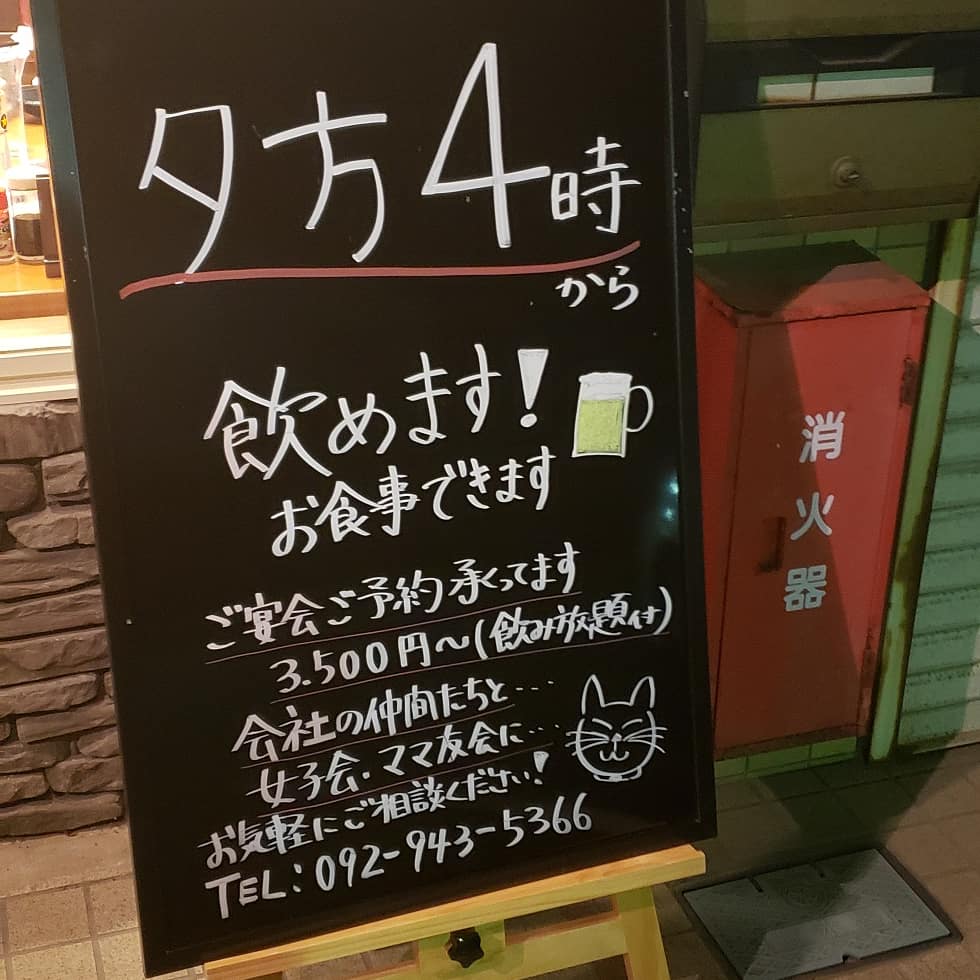 夕方4時
から
飲めます!
お食事できます
ご宴会ご予約承ってます
3.500円〜(飲み放題付)
会社の仲間たちと・・・
女子会・ママ友会に・・・
お気軽にご相談ください!
TEL:092-943-5366
消火器